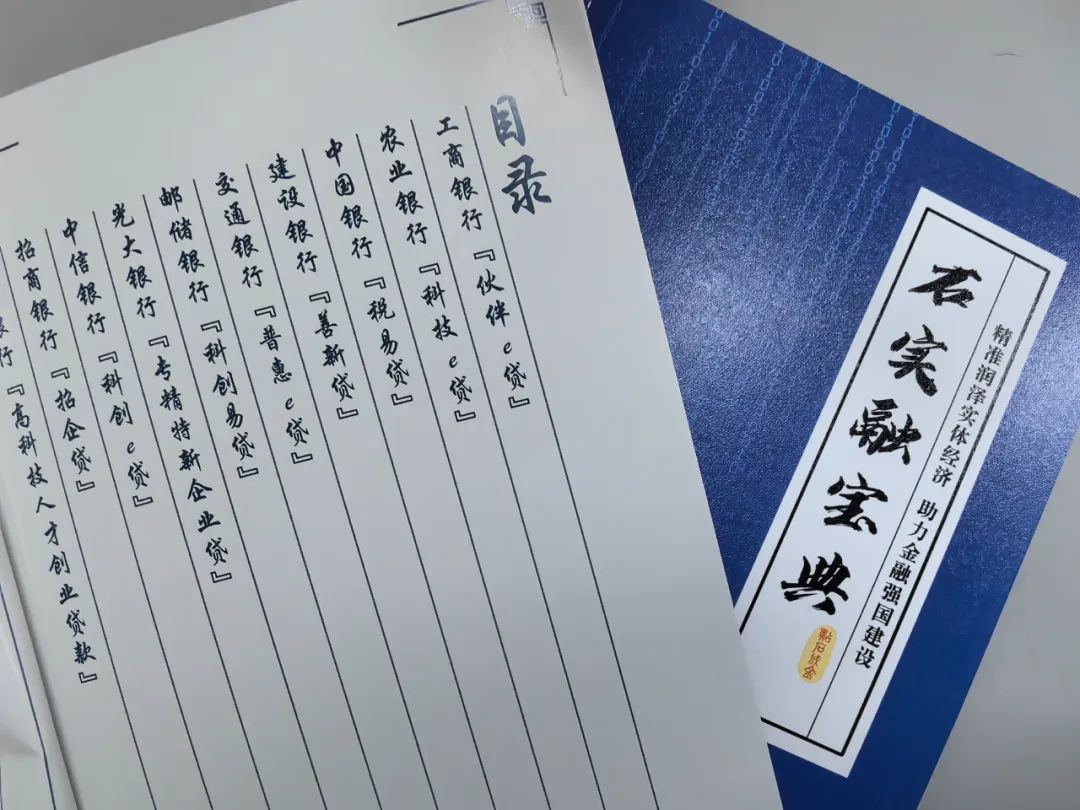 目录
工商银行『伙伴e贷』
农业银行『科技e贷』
中国银行『税易贷』
建设银行『善新贷』
交通银行『普惠e贷』
邮储银行『科创易贷』
光大银行『专精特新企业贷』
中信银行『科创e贷』
招商银行『招企贷』
行『高科技人才创业贷款』
精准润泽实体经济 助力金融强国建设
石实融宝典